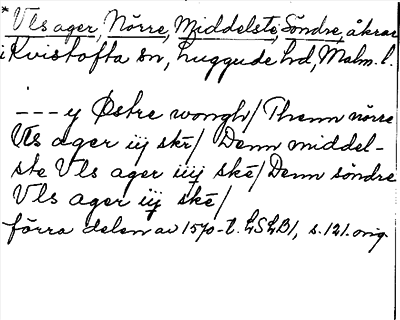 *Vls ager, Nörre, Middelste, Söndre, åkrar
i Kvistofta sn, Luggude hd, Malm. l.
--- y Østre wongh/ Thenn nörre
Vls ager iij skr/ Denn middel-
ste Vls ager iiij ske/ Denn söndre
Vls ager iij ske/
förra delen av 1570-t. LSLB1, s. 121. orig.